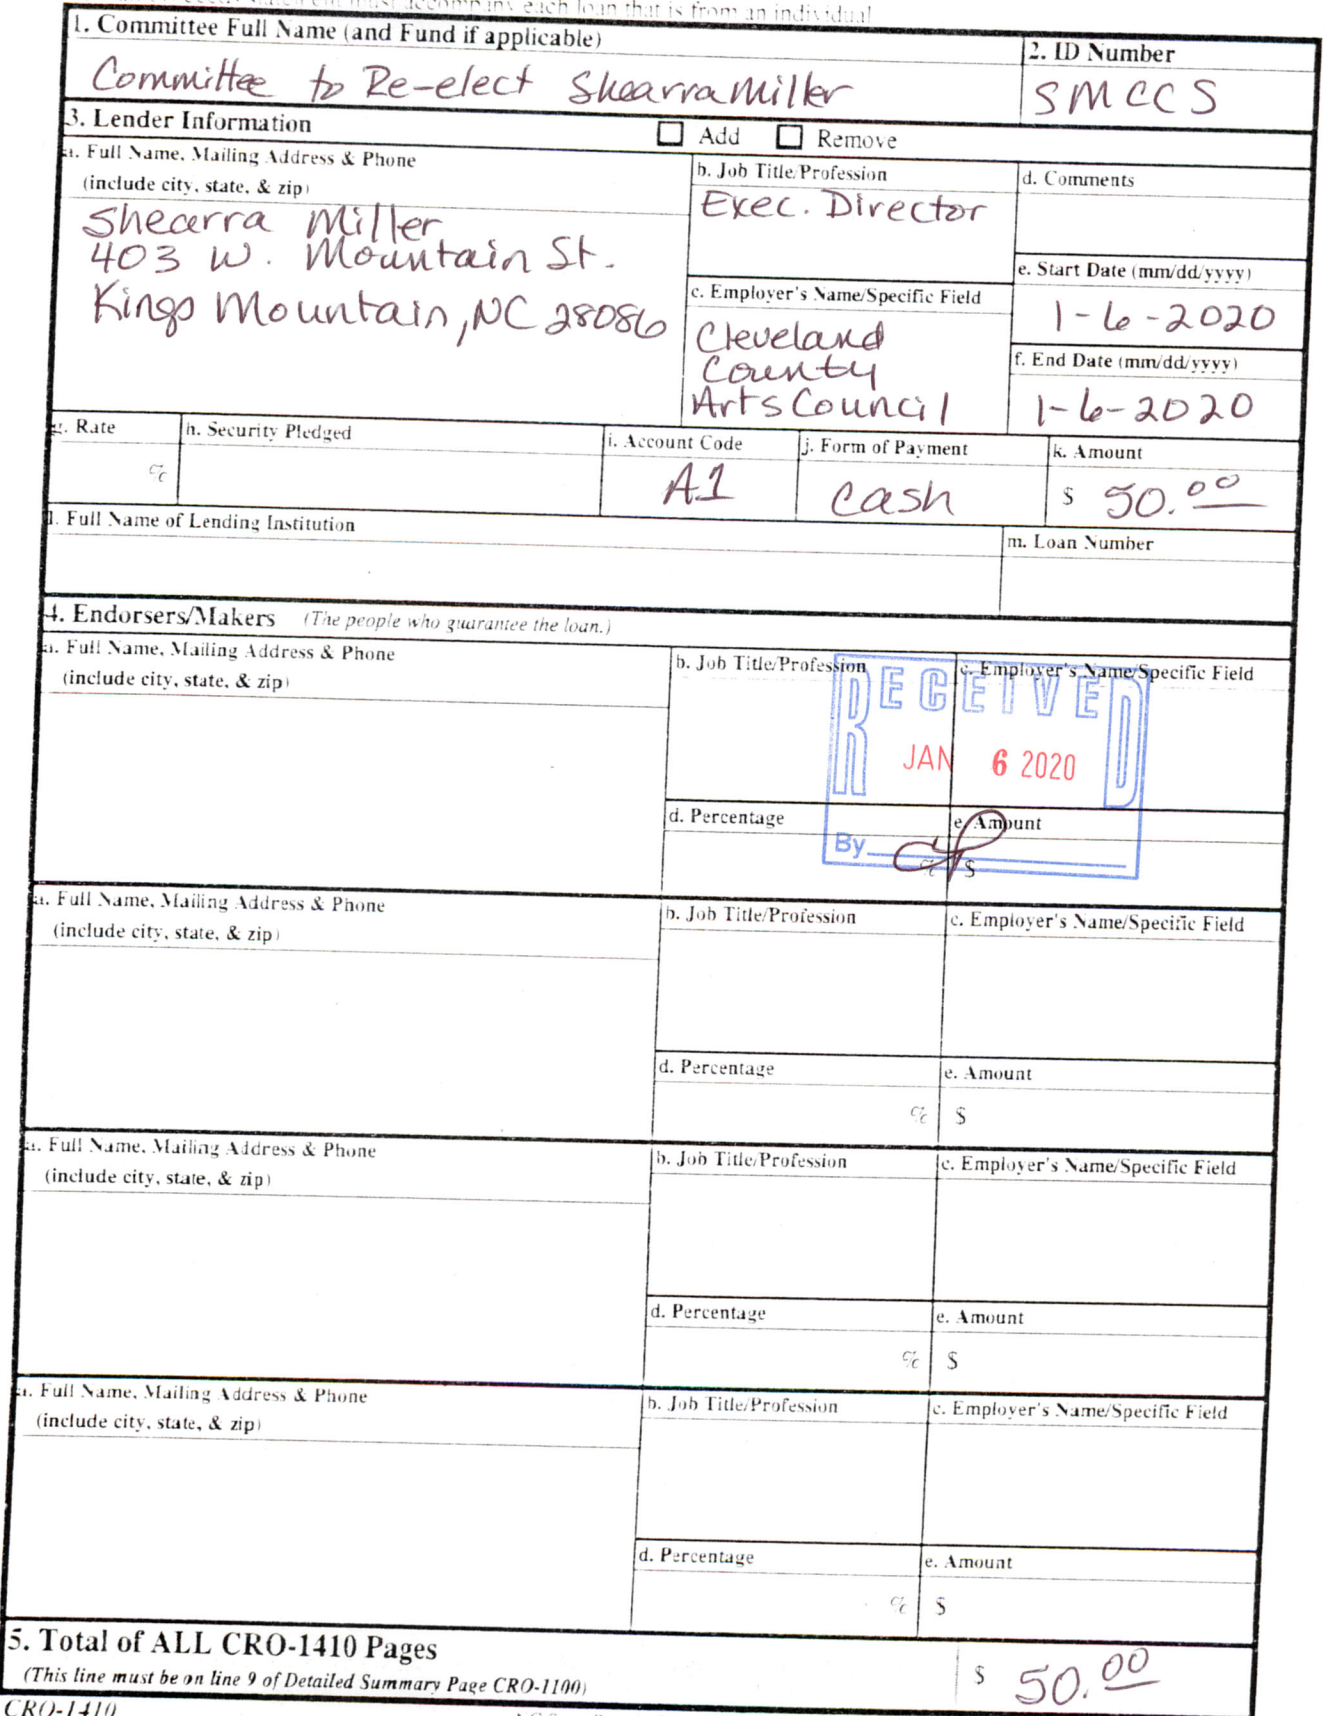 statement must accompany each loan that is from an individual
1. Committee Full Name (and Fund if applicable)
2. ID Number
Committee to Re-elect Shearra Miller
SMCCS
3. Lender Information
Add
Remove
a. Full Name, Mailing Address & Phone
(include city, state, & zip)
b. Job Title/Profession
d. Comments
Shearra Miller
403 W. Mountain St.
Kings Mountain, NC 28086
Exec. Director
c. Employer's Name/Specific Field
Cleveland
County
Arts Council
e. Start Date (mm/dd/yyyy)
1-6-2020
f. End Date (mm/dd/yyyy)
1-6-2020
g. Rate
h. Security Pledged
i. Account Code
j. Form of Payment
k. Amount
%
A1
cash
$ 50.00
l. Full Name of Lending Institution
m. Loan Number
4. Endorsers/Makers (The people who guarantee the loan.)
a. Full Name, Mailing Address & Phone
(include city, state, & zip)
b. Job Title/Profession
c. Employer's Name/Specific Field
RECEIVED
JAN 6 2020
By
d. Percentage
e. Amount
% $
a. Full Name, Mailing Address & Phone
(include city, state, & zip)
b. Job Title/Profession
c. Employer's Name/Specific Field
d. Percentage
e. Amount
% $
a. Full Name, Mailing Address & Phone
(include city, state, & zip)
b. Job Title/Profession
c. Employer's Name/Specific Field
d. Percentage
e. Amount
% $
a. Full Name, Mailing Address & Phone
(include city, state, & zip)
b. Job Title/Profession
c. Employer's Name/Specific Field
d. Percentage
e. Amount
% $
5. Total of ALL CRO-1410 Pages
(This line must be on line 9 of Detailed Summary Page CRO-1100)
$ 50.00
CRO-1410